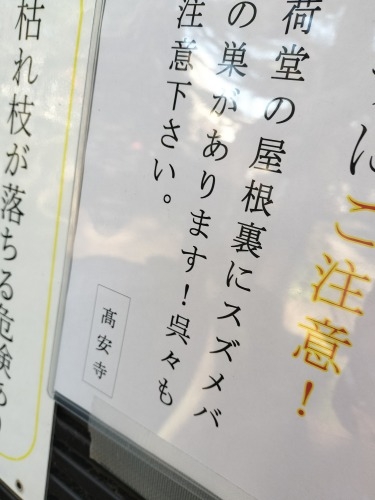 にご注意！
荷堂の屋根裏にスズメバ
の巣があります！呉々も
注意下さい。
髙安寺
枯れ枝が落ちる危険あり